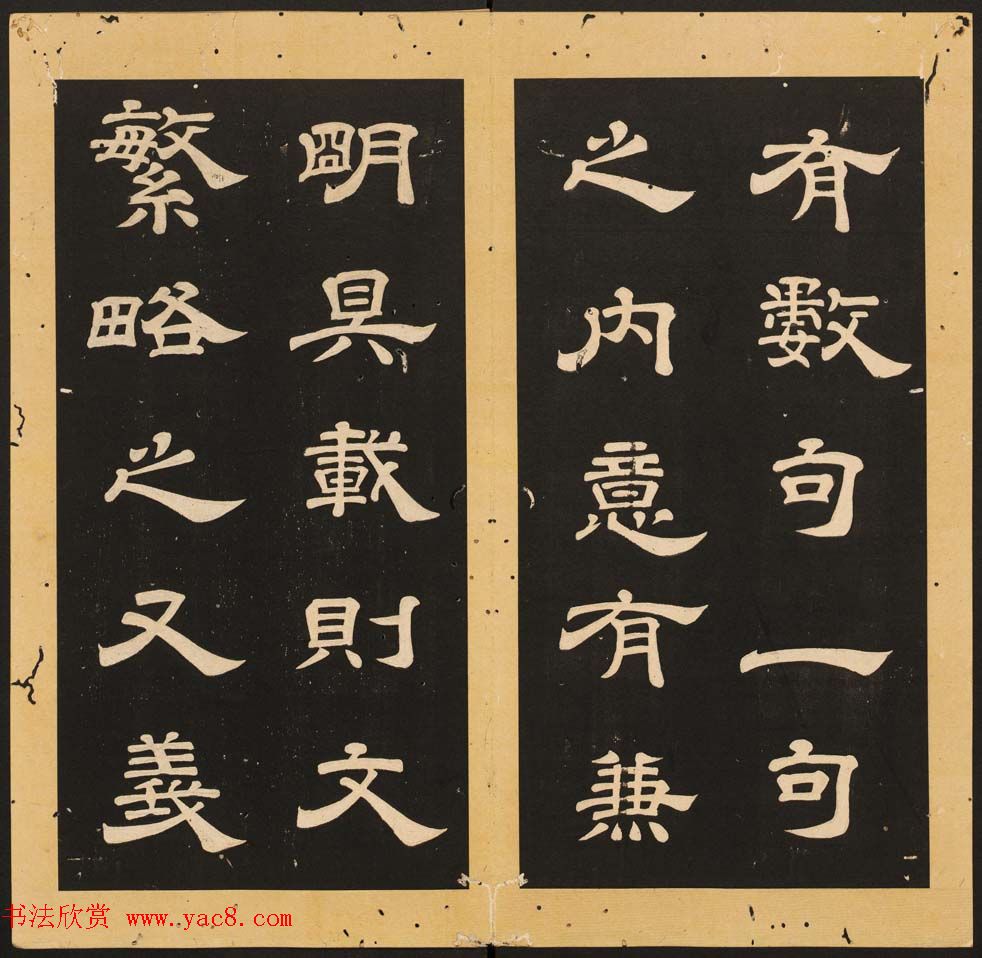 有數句一句
之内意有兼
明具載則文
繁略之又義
书法欣赏 www.yac8.com